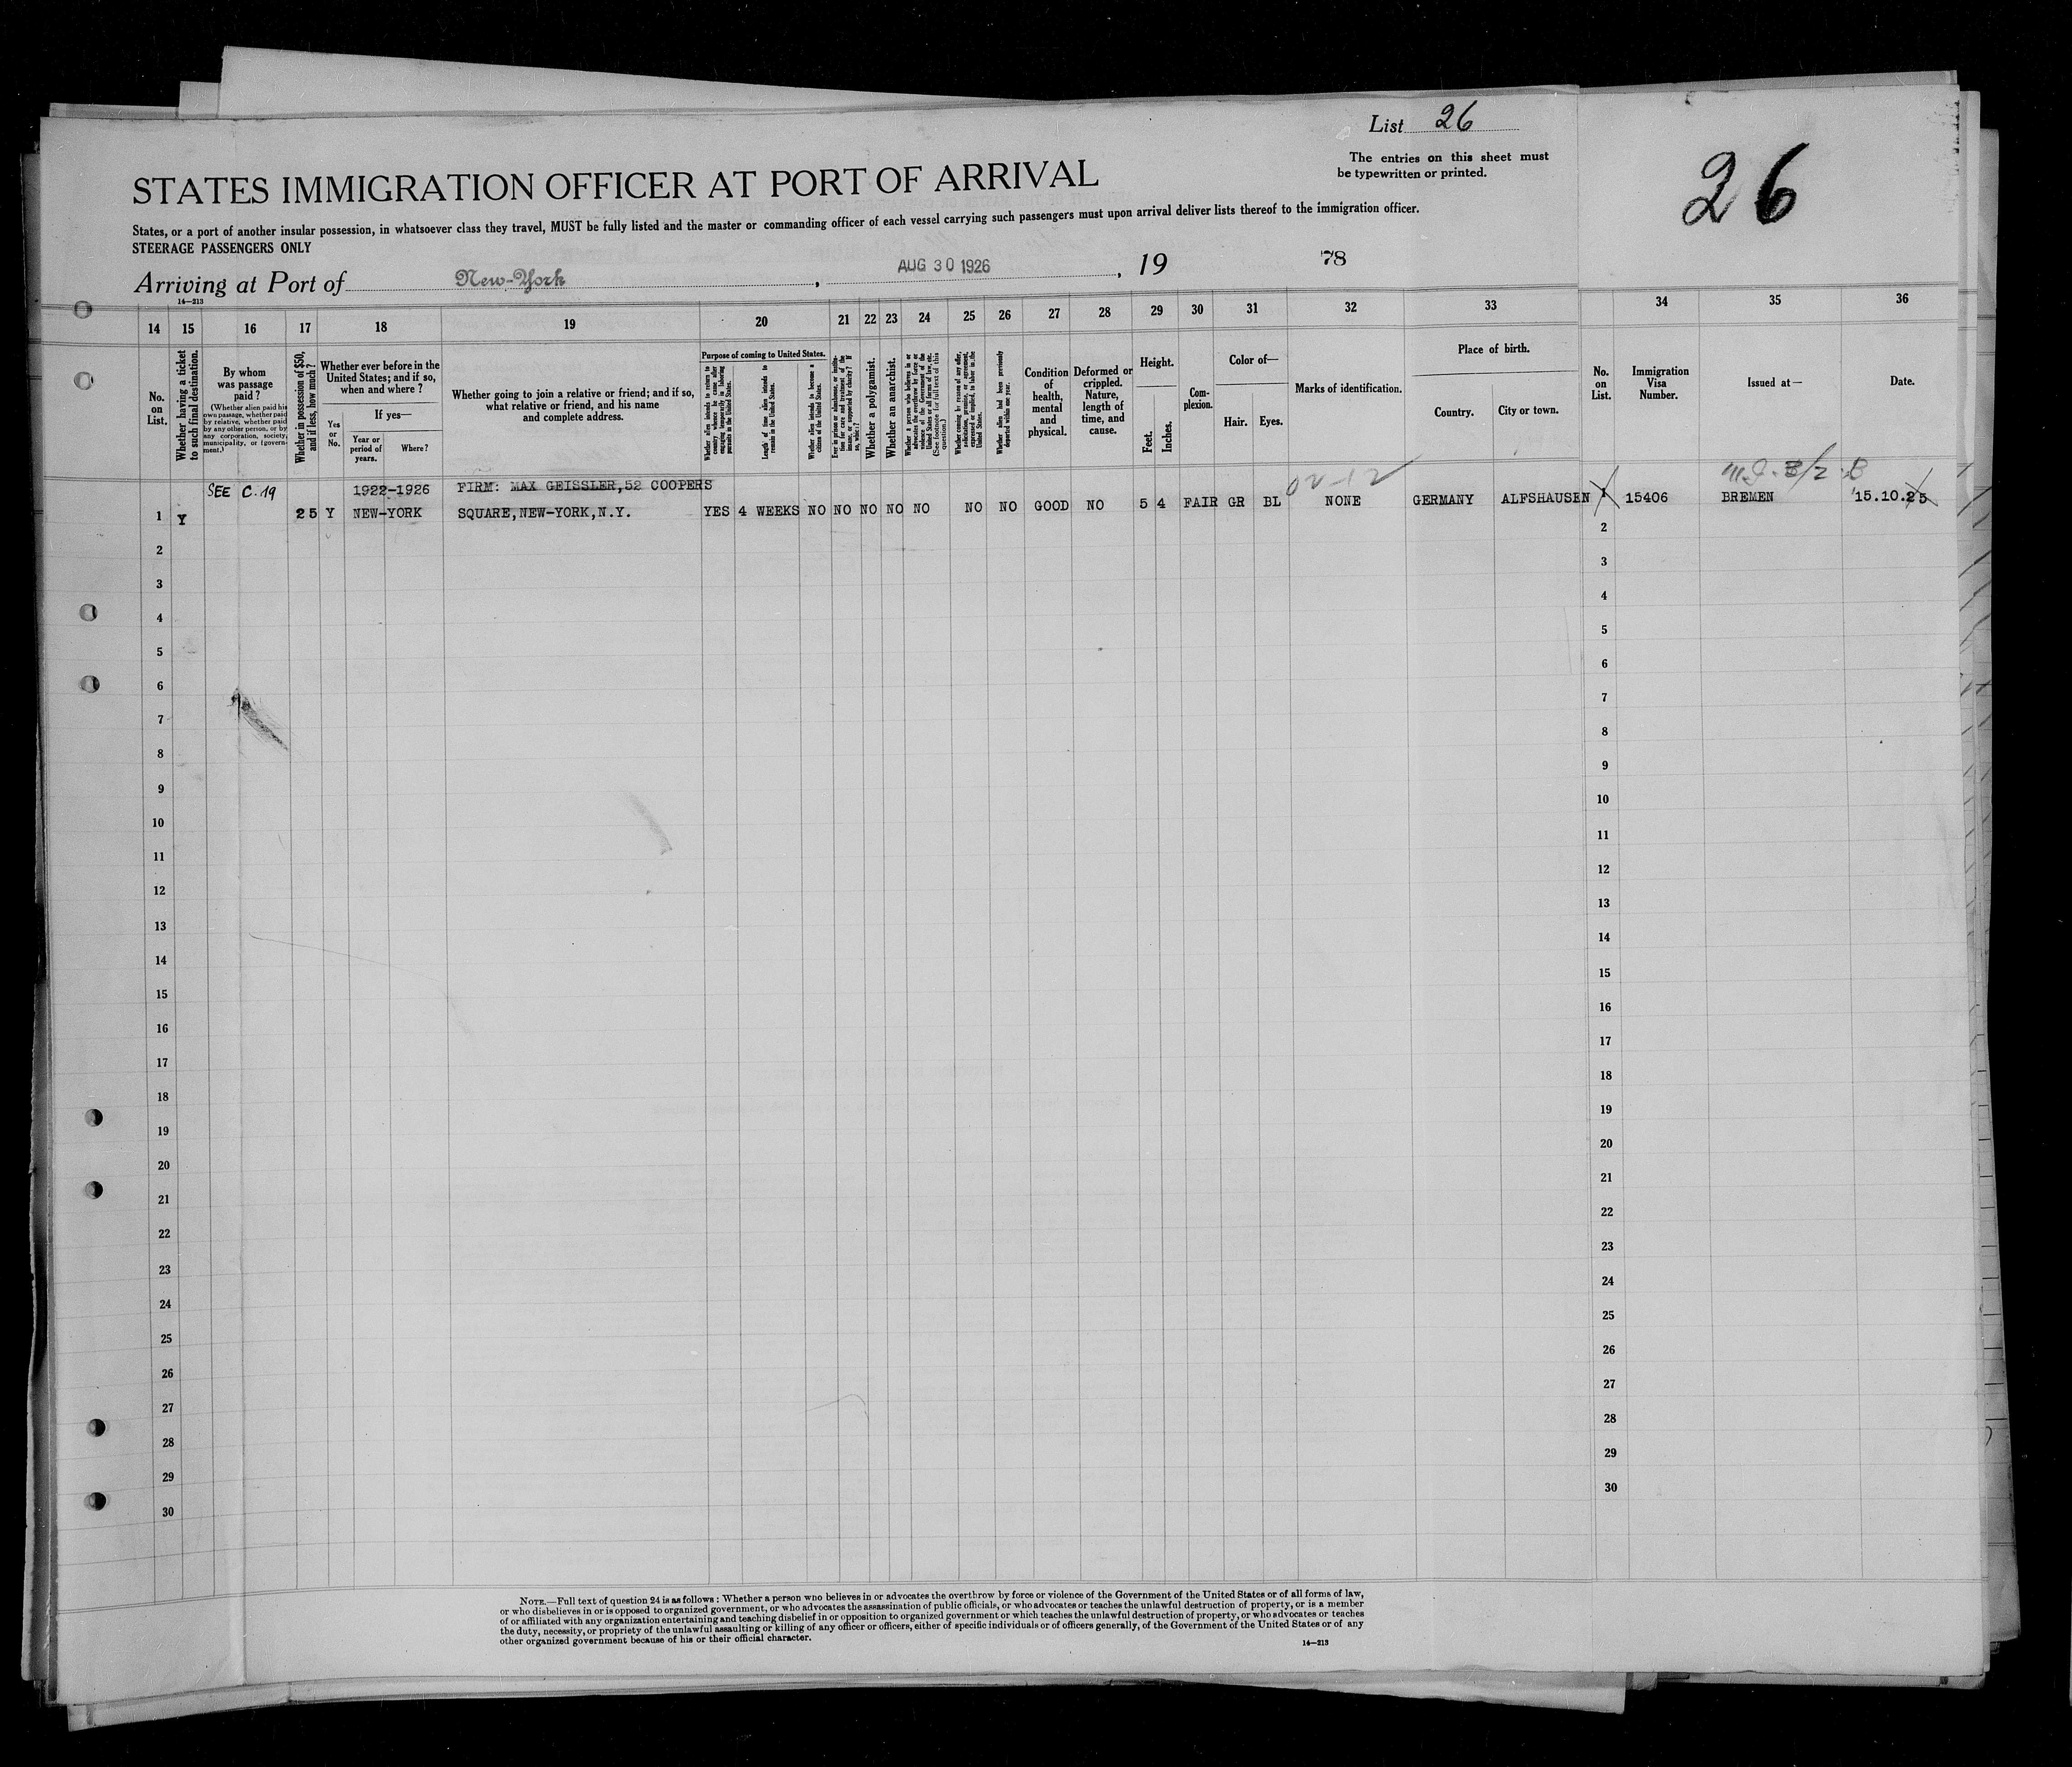 List 26
The entries on this sheet must
be typewritten or printed.
26
STATES IMMIGRATION OFFICER AT PORT OF ARRIVAL
States, or a port of another insular possession, in whatsoever class they travel, MUST be fully listed and the master or commanding officer of each vessel carrying such passengers must upon arrival deliver lists thereof to the immigration officer.
STEERAGE PASSENGERS ONLY
Arriving at Port of New-York, AUG 30 1926, 19
78
14—213
14 15 16 17 18 19 20 21 22 23 24 25 26 27 28 29 30 31 32 33 34 35 36
No. on List.
Whether having a ticket to such final destination.
By whom was passage paid?
(Whether alien paid his own passage, whether paid by relative, whether paid by any other person, or by any corporation, society, municipality, or government.)
Whether in possession of $50, and if less, how much?
Whether ever before in the United States; and if so, when and where?
Yes or No.
If yes—
Year or period of years.
Where?
Whether going to join a relative or friend; and if so, what relative or friend, and his name and complete address.
Purpose of coming to United States.
Whether alien intends to return to country whence he came after engaging temporarily in laboring pursuits in the United States.
Length of time alien intends to remain in the United States.
Whether alien intends to become a citizen of the United States.
Ever in prison or almshouse, or institution for care and treatment of the insane, or supported by charity? If so, which?
Whether a polygamist.
Whether an anarchist.
Whether a person who believes in or advocates the overthrow by force or violence of the Government of the United States or all forms of law, etc. (See footnote for full text of this question.)
Whether coming by reason of any offer, solicitation, promise, or agreement, expressed or implied, to labor in the United States.
Whether alien had been previously deported within one year.
Condition of health, mental and physical.
Deformed or crippled. Nature, length of time, and cause.
Height.
Feet.
Inches.
Complexion.
Color of—
Hair.
Eyes.
Marks of identification.
Place of birth.
Country.
City or town.
No. on List.
Immigration Visa Number.
Issued at—
Date.
SEE C. 19 1922-1926 FIRM: MAX GEISSLER, 52 COOPERS
1 Y 25 Y NEW-YORK SQUARE, NEW-YORK, N.Y. YES 4 WEEKS NO NO NO NO NO NO NO GOOD NO 5 4 FAIR GR BL NONE GERMANY ALFSHAUSEN 1 15406 BREMEN 15.10.25
2 2
3 3
4 4
5 5
6 6
7 7
8 8
9 9
10 10
11 11
12 12
13 13
14 14
15 15
16 16
17 17
18 18
19 19
20 20
21 21
22 22
23 23
24 24
25 25
26 26
27 27
28 28
29 29
30 30
NOTE.—Full text of question 24 is as follows: Whether a person who believes in or advocates the overthrow by force or violence of the Government of the United States or of all forms of law,
or who disbelieves in or is opposed to organized government, or who advocates the assassination of public officials, or who advocates or teaches the unlawful destruction of property, or is a member
of or affiliated with any organization entertaining and teaching disbelief in or opposition to organized government or which teaches the unlawful destruction of property, or who advocates or teaches
the duty, necessity, or propriety of the unlawful assaulting or killing of any officer or officers, either of specific individuals or of officers generally, of the Government of the United States or of any
other organized government because of his or their official character.
14—213